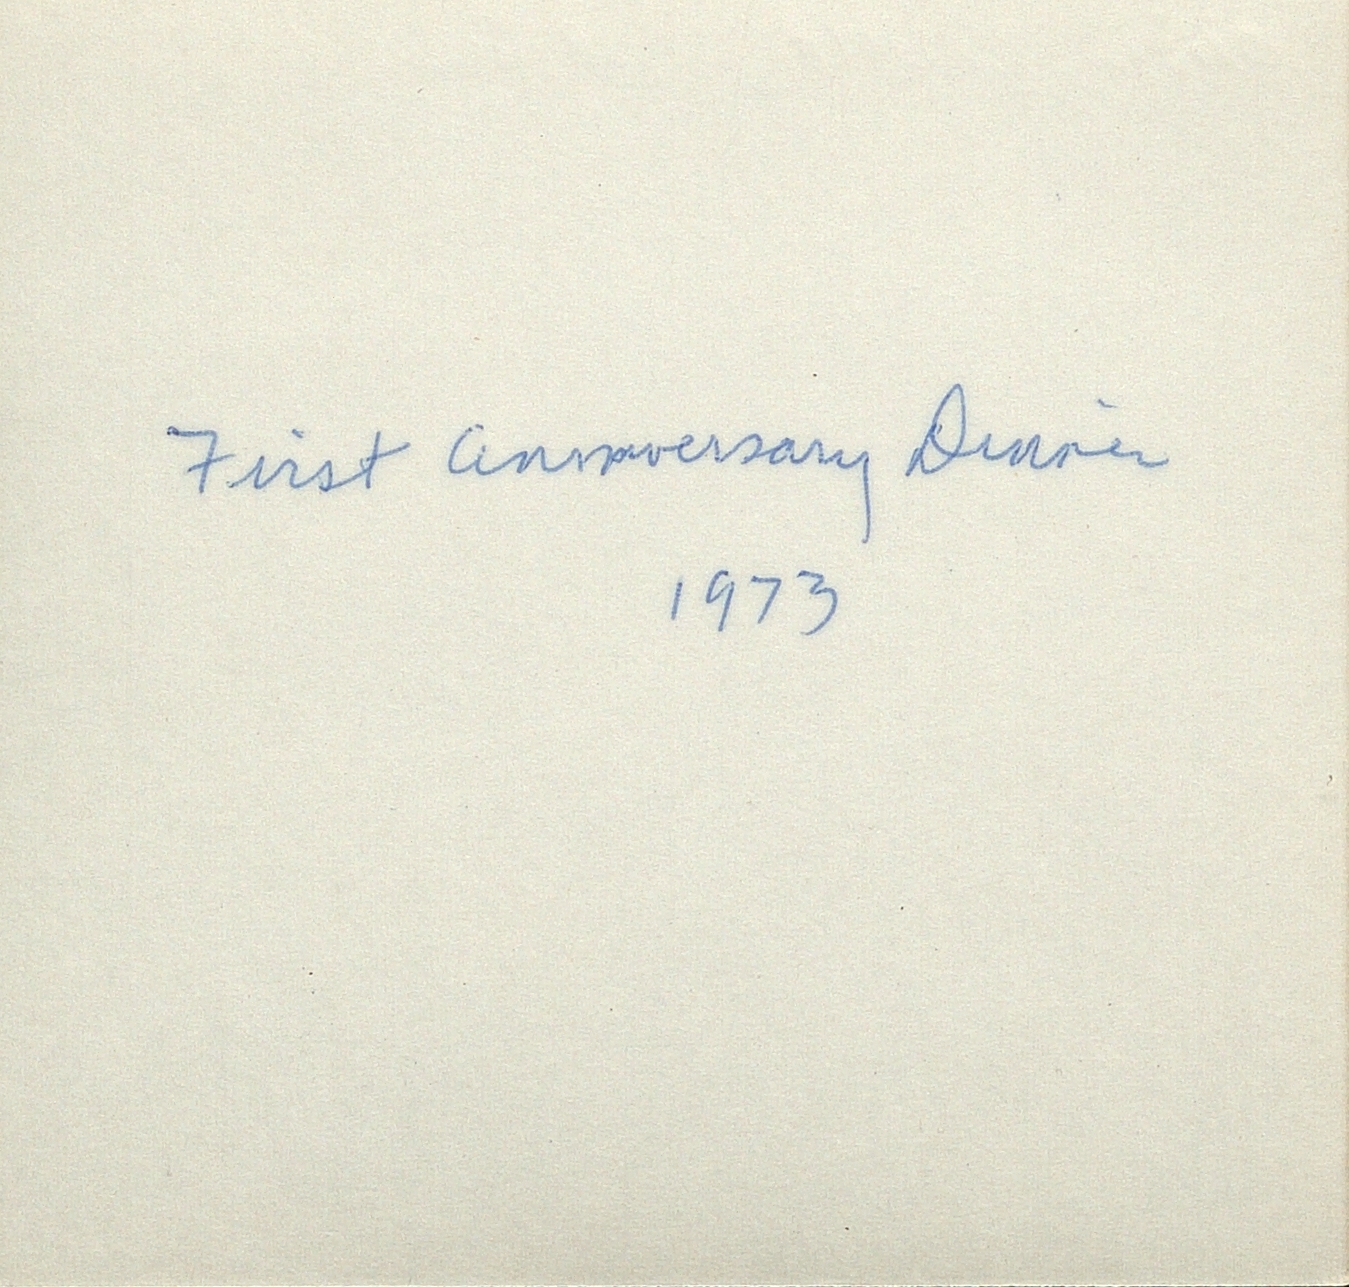 First Anniversary Dinner
1973